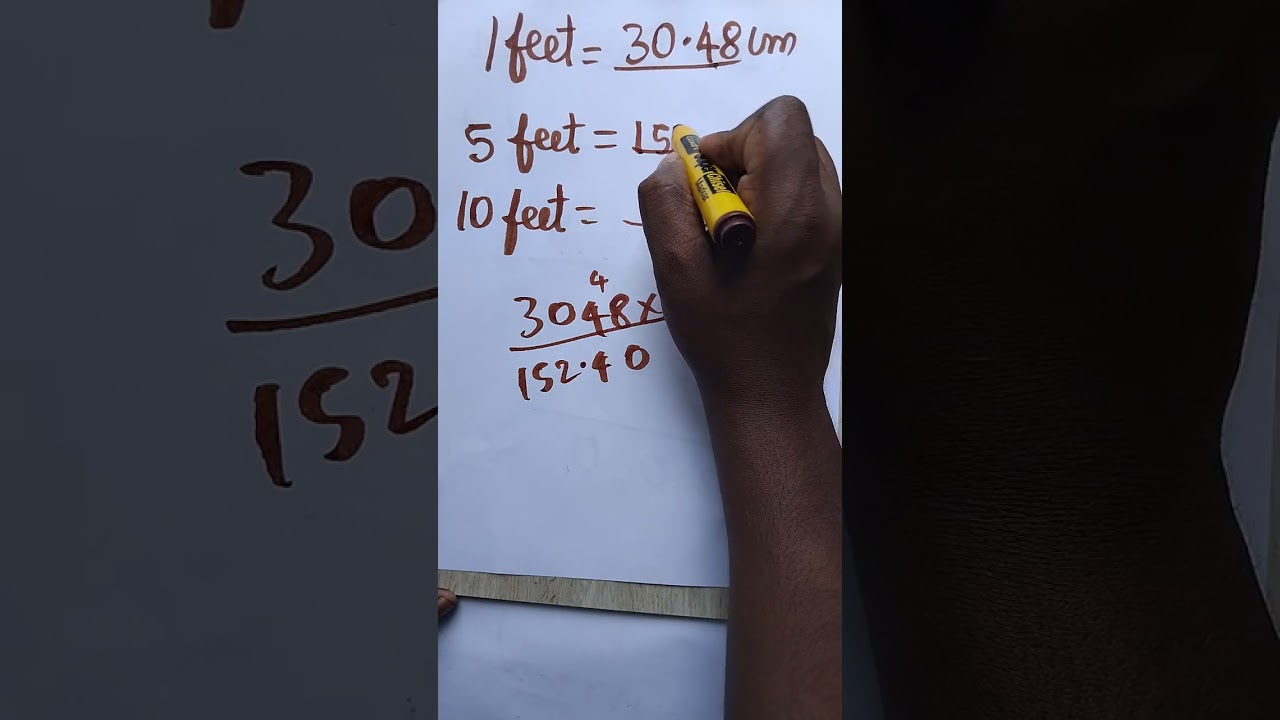 1 feet = 30.48 cm
5 feet = 15
10 feet =
4
3048 x
152.40